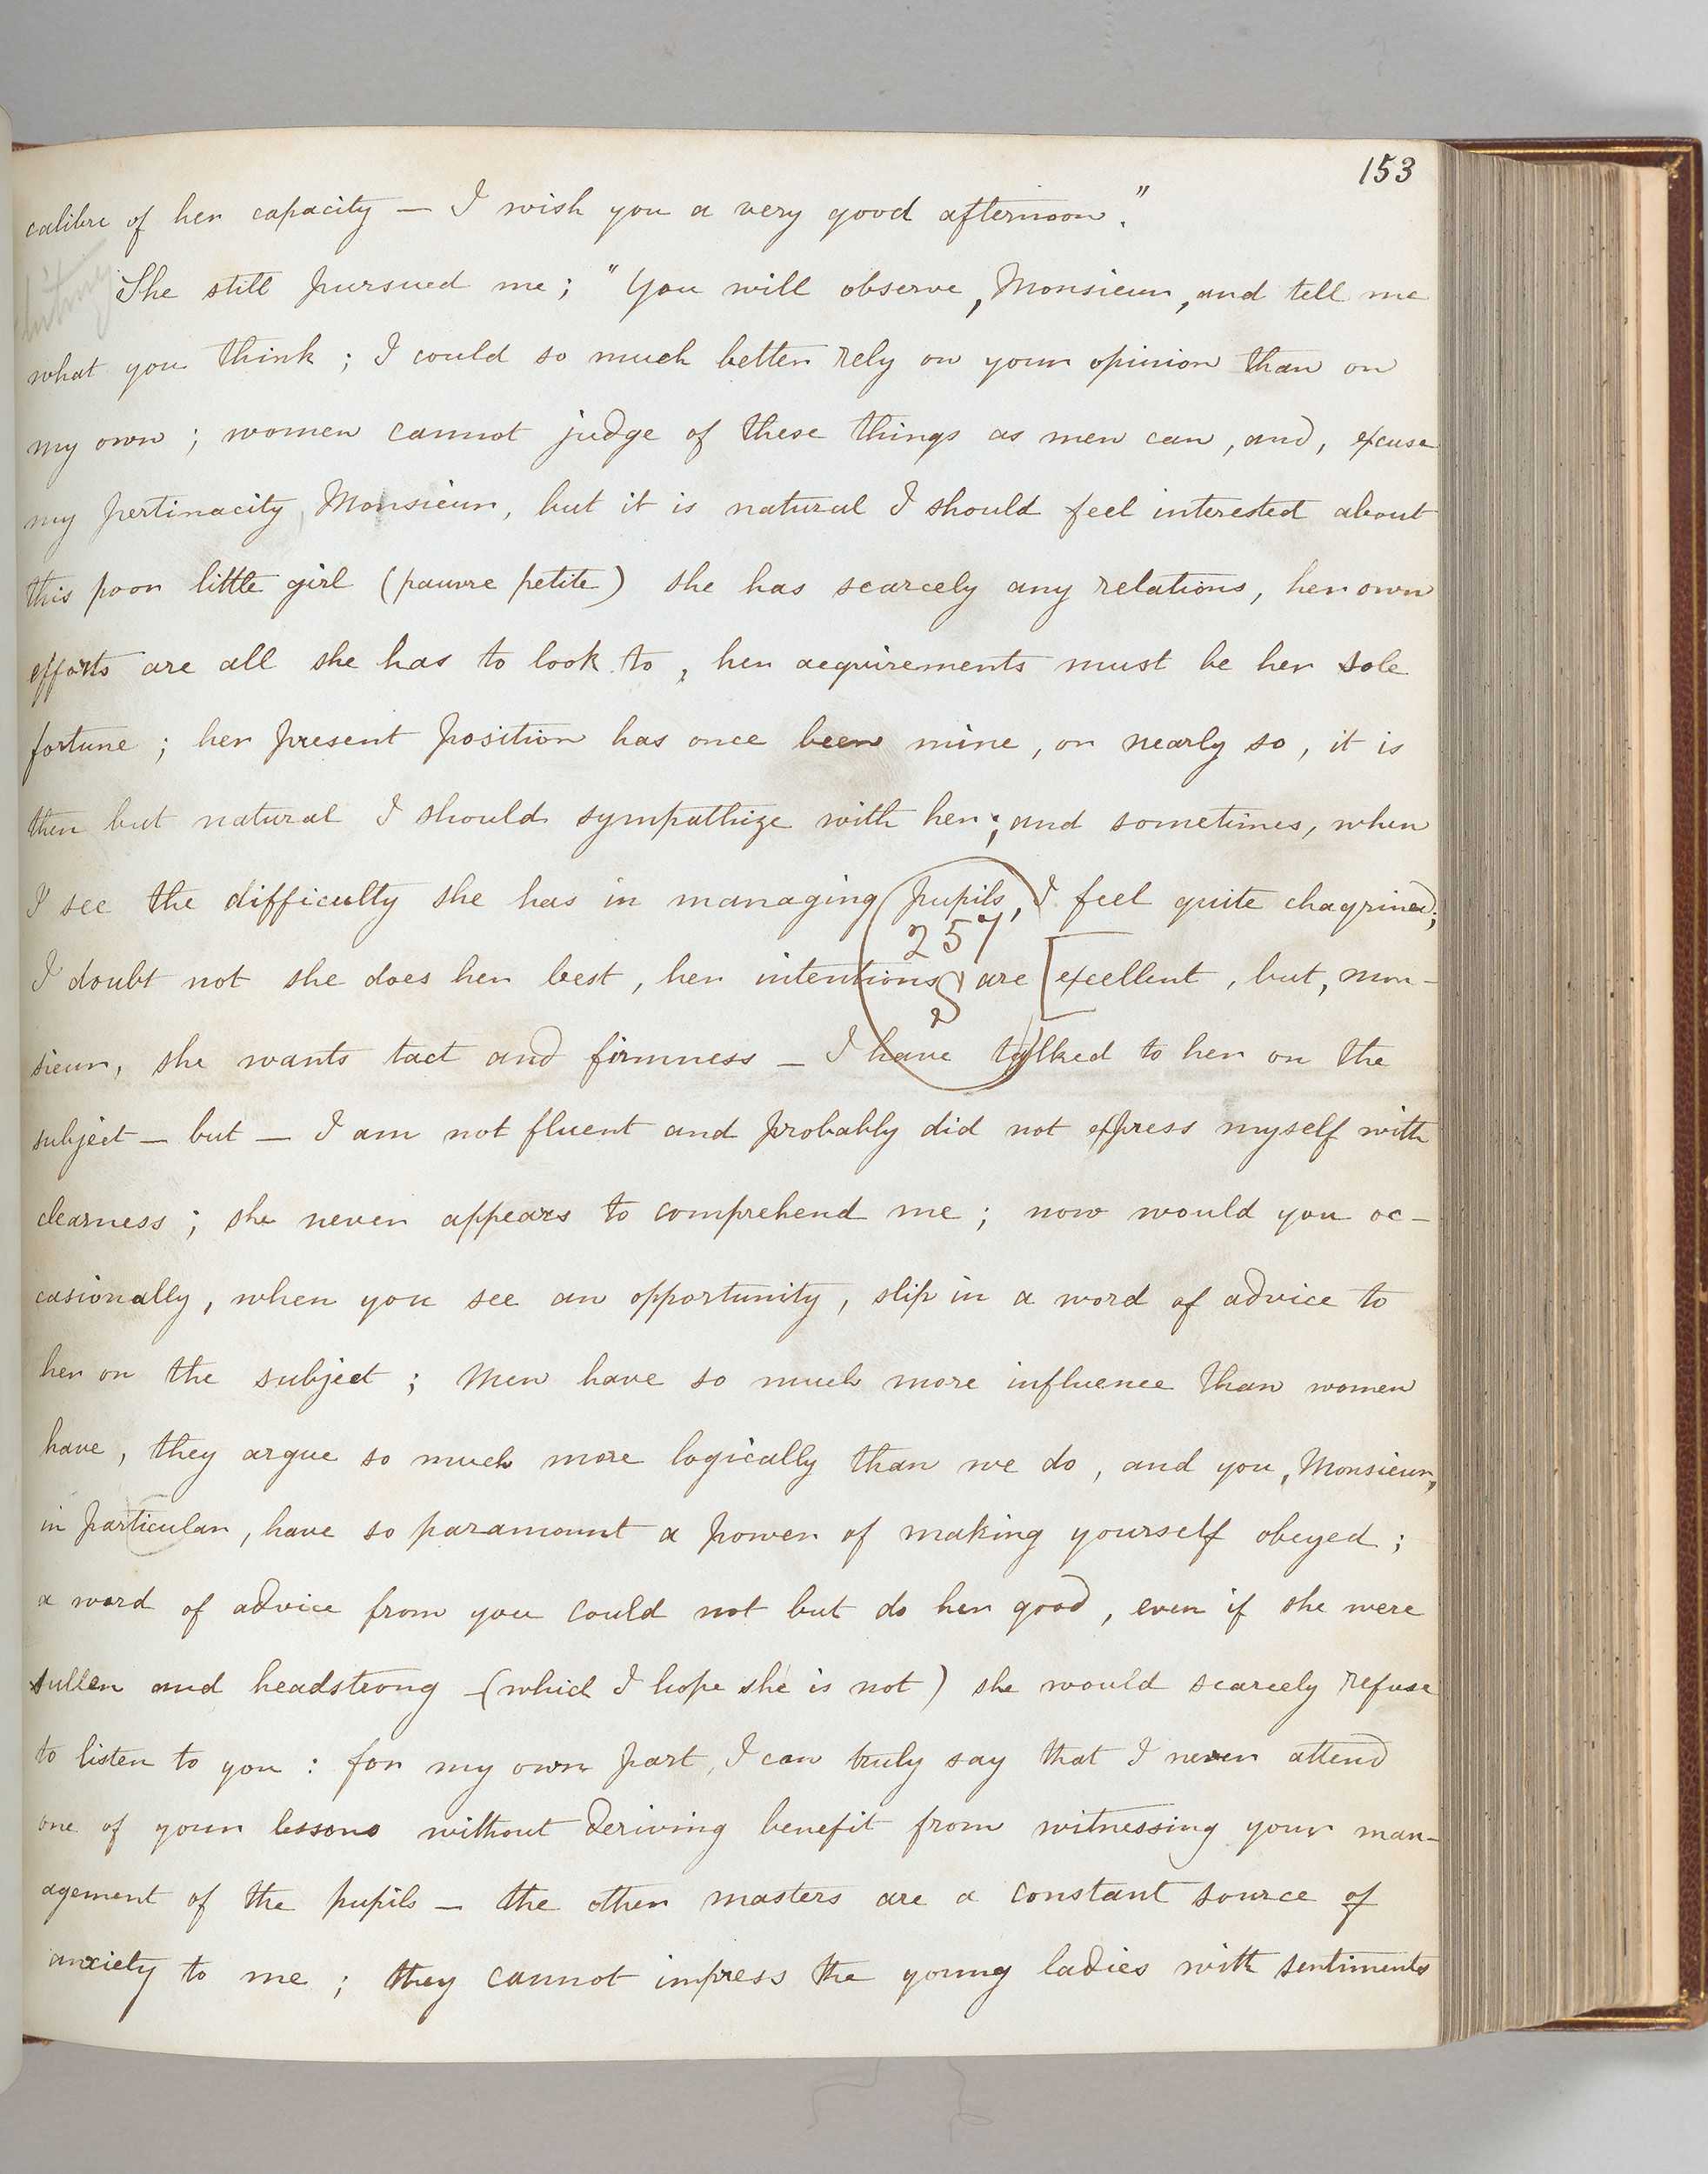 153
calibre of her capacity — I wish you a very good afternoon."
She still pursued me; "You will observe, Monsieur, and tell me
what you think; I could so much better rely on your opinion than on
my own; women cannot judge of these things as men can, and, excuse
my pertinacity, Monsieur, but it is natural I should feel interested about
this poor little girl (pauvre petite) she has scarcely any relations, her own
efforts are all she has to look to, her acquirements must be her sole
fortune; her present position has once been mine, or nearly so, it is
then but natural I should sympathize with her; and sometimes, when
I see the difficulty she has in managing pupils, I feel quite chagrined;
257
I doubt not she does her best, her intentions are [excellent, but, mon-
S
sieur, she wants tact and firmness — I have talked to her on the
subject — but — I am not fluent and probably did not express myself with
clearness; she never appears to comprehend me; now would you oc-
casionally, when you see an opportunity, slip in a word of advice to
her on the subject; men have so much more influence than women
have, they argue so much more logically than we do, and you, Monsieur,
in particular, have so paramount a power of making yourself obeyed;
a word of advice from you could not but do her good, even if she were
sullen and headstrong (which I hope she is not) she would scarcely refuse
to listen to you: for my own part, I can truly say that I never attend
one of your lessons without deriving benefit from witnessing your man-
agement of the pupils — the other masters are a constant source of
anxiety to me; they cannot impress the young ladies with sentiments